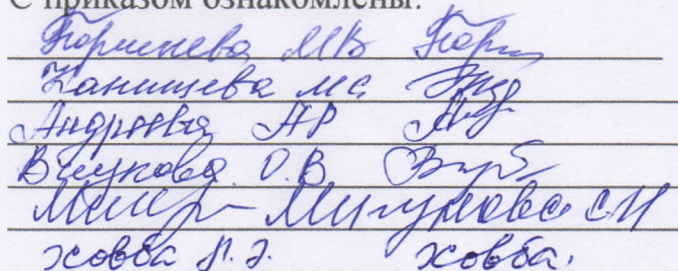 С приказом ознакомлены:
Поршнева МВ
Канищева МС
Андреева АР
Внукова О.В
Мигунова СН
Ховба Л.З. Ховба.